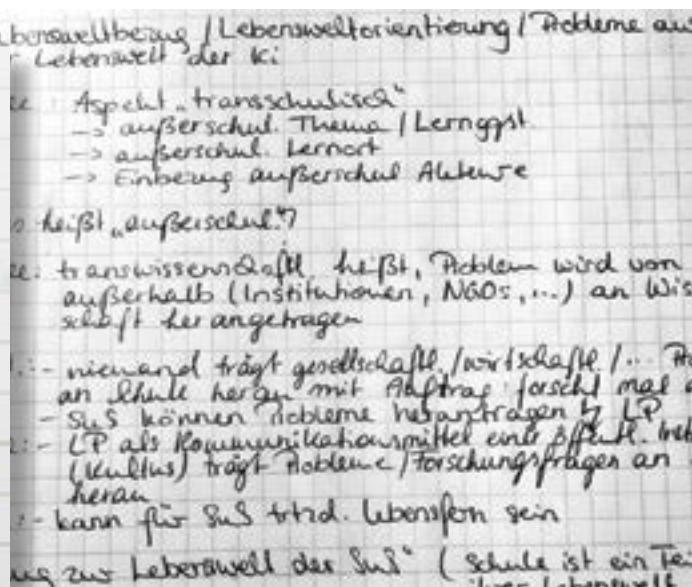 bensweltbezug / Lebensweltorientierung / Probleme aus
Lebenswelt der Ki
Aspekt „transschulisch“
-> außerschul. Thema / Lernggst.
-> außerschul. Lernort
-> Einbezug außerschul Akteure
heißt „außerschul.“?
transwissenschaftl. heißt, Problem wird von
außerhalb (Institutionen, NGOs, ...) an Wis
schaft herangetragen
- niemand trägt gesellschaftl. / wirtschaftl. / ...
an Schule heran mit Auftrag forscht mal
- SuS können Probleme herantragen LP
- LP als Kommunikationsmittel einer öffentl.
(Kultus) trägt Probleme / Forschungsfragen an
heran
- kann für SuS trtzd. lebensfern sein
ug zur Lebenswelt der SuS“ (Schule ist ein Tei
ihrer Lebenswelt